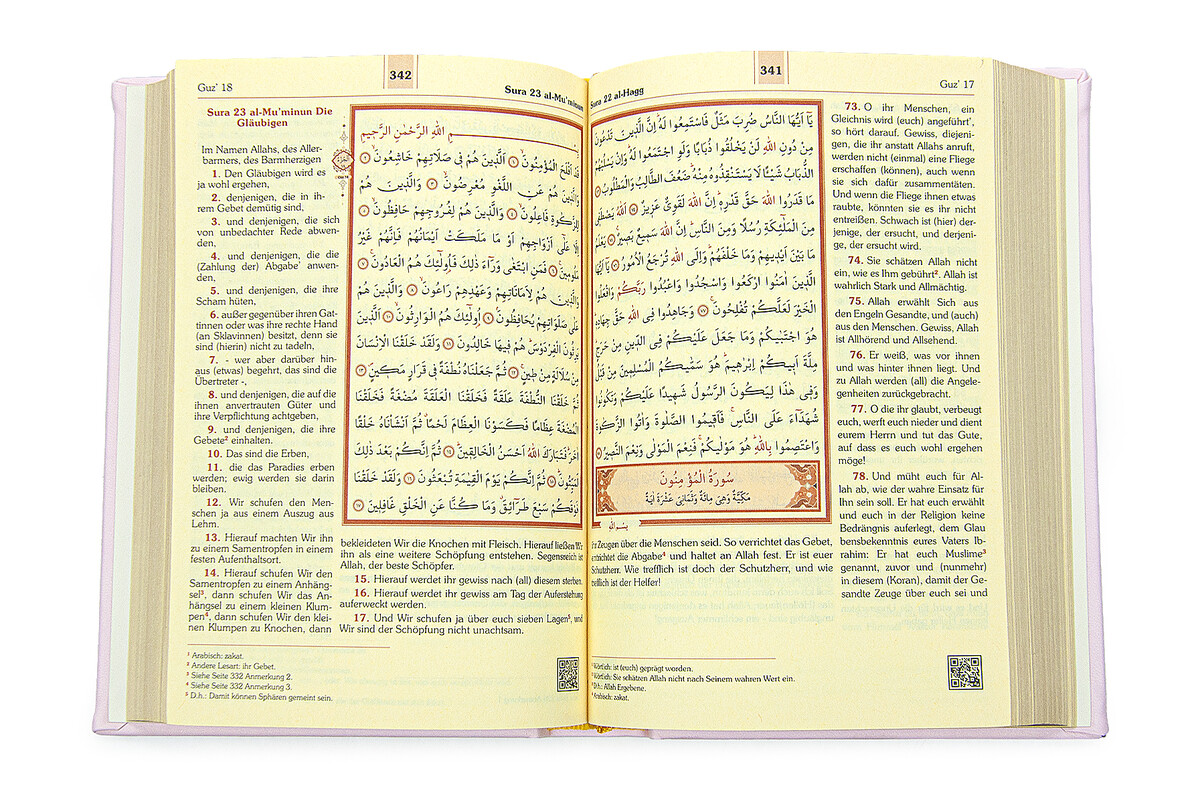 341
Sura 22 al-Hagg
Guz' 17
يَا أَيُّهَا النَّاسُ ضُرِبَ مَثَلٌ فَاسْتَمِعُوا لَهُ إِنَّ الَّذِينَ تَدْعُونَ
مِنْ دُونِ اللهِ لَنْ يَخْلُقُوا ذُبَابًا وَلَوِ اجْتَمَعُوا لَهُ وَإِنْ يَسْلُبْهُمُ
الذُّبَابُ شَيْئًا لَا يَسْتَنْقِذُوهُ مِنْهُ ضَعُفَ الطَّالِبُ وَالْمَطْلُوبُ ﴿٧٣﴾
مَا قَدَرُوا اللهَ حَقَّ قَدْرِهِ إِنَّ اللهَ لَقَوِيٌّ عَزِيزٌ ﴿٧٤﴾ اَللهُ يَصْطَفِي
مِنَ الْمَلٰئِكَةِ رُسُلًا وَمِنَ النَّاسِ إِنَّ اللهَ سَمِيعٌ بَصِيرٌ ﴿٧٥﴾ يَعْلَمُ
مَا بَيْنَ أَيْدِيهِمْ وَمَا خَلْفَهُمْ وَإِلَى اللهِ تُرْجَعُ الْأُمُورُ ﴿٧٦﴾ يَا أَيُّهَا
الَّذِينَ اٰمَنُوا ارْكَعُوا وَاسْجُدُوا وَاعْبُدُوا رَبَّكُمْ وَافْعَلُوا
الْخَيْرَ لَعَلَّكُمْ تُفْلِحُونَ ﴿٧٧﴾ وَجَاهِدُوا فِي اللهِ حَقَّ جِهَادِهِ
هُوَ اجْتَبٰيكُمْ وَمَا جَعَلَ عَلَيْكُمْ فِي الدِّينِ مِنْ حَرَجٍ
مِلَّةَ أَبِيكُمْ إِبْرٰهِيمَ هُوَ سَمّٰيكُمُ الْمُسْلِمِينَ مِنْ قَبْلُ
وَفِي هٰذَا لِيَكُونَ الرَّسُولُ شَهِيدًا عَلَيْكُمْ وَتَكُونُوا
شُهَدَاءَ عَلَى النَّاسِ فَأَقِيمُوا الصَّلٰوةَ وَاٰتُوا الزَّكٰوةَ
وَاعْتَصِمُوا بِاللهِ هُوَ مَوْلٰيكُمْ فَنِعْمَ الْمَوْلٰى وَنِعْمَ النَّصِيرُ ﴿٧٨﴾
سُورَةُ الْمُؤْمِنُونَ
مَكِّيَّةٌ وَهِيَ مِائَةٌ وَثَمَانِيَ عَشْرَةَ اٰيَةً
73. O ihr Menschen, ein
Gleichnis wird (euch) angeführt¹,
so hört darauf. Gewiss, diejeni-
gen, die ihr anstatt Allahs anruft,
werden nicht (einmal) eine Fliege
erschaffen (können), auch wenn
sie sich dafür zusammentäten.
Und wenn die Fliege ihnen etwas
raubte, könnten sie es ihr nicht
entreißen. Schwach ist (hier) der-
jenige, der ersucht, und derjeni-
ge, der ersucht wird.
74. Sie schätzen Allah nicht
ein, wie es Ihm gebührt². Allah ist
wahrlich Stark und Allmächtig.
75. Allah erwählt Sich aus
den Engeln Gesandte, und (auch)
aus den Menschen. Gewiss, Allah
ist Allhörend und Allsehend.
76. Er weiß, was vor ihnen
und was hinter ihnen liegt. Und
zu Allah werden (all) die Angele-
genheiten zurückgebracht.
77. O die ihr glaubt, verbeugt
euch, werft euch nieder und dient
eurem Herrn und tut das Gute,
auf dass es euch wohl ergehen
möge!
78. Und müht euch für Al-
lah ab, wie der wahre Einsatz für
Ihn sein soll. Er hat euch erwählt
und euch in der Religion keine
Bedrängnis auferlegt, dem Glau
bensbekenntnis eures Vaters Ib-
rahim: Er hat euch Muslime³
genannt, zuvor und (nunmehr)
in diesem (Koran), damit der Ge-
sandte Zeuge über euch sei und
ihr Zeugen über die Menschen seid. So verrichtet das Gebet,
entrichtet die Abgabe⁴ und haltet an Allah fest. Er ist euer
Schutzherr. Wie trefflich ist doch der Schutzherr, und wie
trefflich ist der Helfer!
¹ Wörtlich: ist (euch) geprägt worden.
² Wörtlich: Sie schätzen Allah nicht nach Seinem wahren Wert ein.
³ D.h.: Allah Ergebene.
⁴ Arabisch: zakat.
342
Guz' 18
Sura 23 al-Mu'minun
Sura 23 al-Mu'minun Die
Gläubigen
Im Namen Allahs, des Aller-
barmers, des Barmherzigen
1. Den Gläubigen wird es
ja wohl ergehen,
2. denjenigen, die in ih-
rem Gebet demütig sind,
3. und denjenigen, die sich
von unbedachter Rede abwen-
den,
4. und denjenigen, die die
(Zahlung der) Abgabe¹ anwen-
den,
5. und denjenigen, die ihre
Scham hüten,
6. außer gegenüber ihren Gat-
tinnen oder was ihre rechte Hand
(an Sklavinnen) besitzt, denn sie
sind (hierin) nicht zu tadeln,
7. - wer aber darüber hin-
aus (etwas) begehrt, das sind die
Übertreter -,
8. und denjenigen, die auf die
ihnen anvertrauten Güter und
ihre Verpflichtung achtgeben,
9. und denjenigen, die ihre
Gebete² einhalten.
10. Das sind die Erben,
11. die das Paradies erben
werden; ewig werden sie darin
bleiben.
12. Wir schufen den Men-
schen ja aus einem Auszug aus
Lehm.
13. Hierauf machten Wir ihn
zu einem Samentropfen in einem
festen Aufenthaltsort.
14. Hierauf schufen Wir den
Samentropfen zu einem Anhäng-
sel³, dann schufen Wir das An-
hängsel zu einem kleinen Klum-
pen⁴, dann schufen Wir den klei-
nen Klumpen zu Knochen, dann
مِ اللهِ الرَّحْمٰنِ الرَّحِيمِ
قَدْ أَفْلَحَ الْمُؤْمِنُونَ ﴿١﴾ اَلَّذِينَ هُمْ فِي صَلَاتِهِمْ خَاشِعُونَ ﴿٢﴾
وَالَّذِينَ هُمْ عَنِ اللَّغْوِ مُعْرِضُونَ ﴿٣﴾ وَالَّذِينَ هُمْ
لِلزَّكٰوةِ فَاعِلُونَ ﴿٤﴾ وَالَّذِينَ هُمْ لِفُرُوجِهِمْ حَافِظُونَ ﴿٥﴾
إِلَّا عَلٰى أَزْوَاجِهِمْ أَوْ مَا مَلَكَتْ أَيْمَانُهُمْ فَإِنَّهُمْ غَيْرُ
مَلُومِينَ ﴿٦﴾ فَمَنِ ابْتَغٰى وَرَاءَ ذٰلِكَ فَأُولٰئِكَ هُمُ الْعَادُونَ ﴿٧﴾
وَالَّذِينَ هُمْ لِأَمَانَاتِهِمْ وَعَهْدِهِمْ رَاعُونَ ﴿٨﴾ وَالَّذِينَ هُمْ
عَلٰى صَلَوَاتِهِمْ يُحَافِظُونَ ﴿٩﴾ أُولٰئِكَ هُمُ الْوَارِثُونَ ﴿١٠﴾ اَلَّذِينَ
يَرِثُونَ الْفِرْدَوْسَ هُمْ فِيهَا خَالِدُونَ ﴿١١﴾ وَلَقَدْ خَلَقْنَا الْإِنْسَانَ
مِنْ سُلَالَةٍ مِنْ طِينٍ ﴿١٢﴾ ثُمَّ جَعَلْنَاهُ نُطْفَةً فِي قَرَارٍ مَكِينٍ ﴿١٣﴾
ثُمَّ خَلَقْنَا النُّطْفَةَ عَلَقَةً فَخَلَقْنَا الْعَلَقَةَ مُضْغَةً فَخَلَقْنَا
الْمُضْغَةَ عِظَامًا فَكَسَوْنَا الْعِظَامَ لَحْمًا ثُمَّ أَنْشَأْنَاهُ خَلْقًا
اٰخَرَ فَتَبَارَكَ اللهُ أَحْسَنُ الْخَالِقِينَ ﴿١٤﴾ ثُمَّ إِنَّكُمْ بَعْدَ ذٰلِكَ
لَمَيِّتُونَ ﴿١٥﴾ ثُمَّ إِنَّكُمْ يَوْمَ الْقِيٰمَةِ تُبْعَثُونَ ﴿١٦﴾ وَلَقَدْ خَلَقْنَا
فَوْقَكُمْ سَبْعَ طَرَائِقَ وَمَا كُنَّا عَنِ الْخَلْقِ غَافِلِينَ ﴿١٧﴾
bekleideten Wir die Knochen mit Fleisch. Hierauf ließen Wir
ihn als eine weitere Schöpfung entstehen. Segensreich ist
Allah, der beste Schöpfer.
15. Hierauf werdet ihr gewiss nach (all) diesem sterben.
16. Hierauf werdet ihr gewiss am Tag der Auferstehung
auferweckt werden.
17. Und Wir schufen ja über euch sieben Lagen⁵, und
Wir sind der Schöpfung nicht unachtsam.
¹ Arabisch: zakat.
² Andere Lesart: ihr Gebet.
³ Siehe Seite 332 Anmerkung 2.
⁴ Siehe Seite 332 Anmerkung 3.
⁵ D.h.: Damit können Sphären gemeint sein.